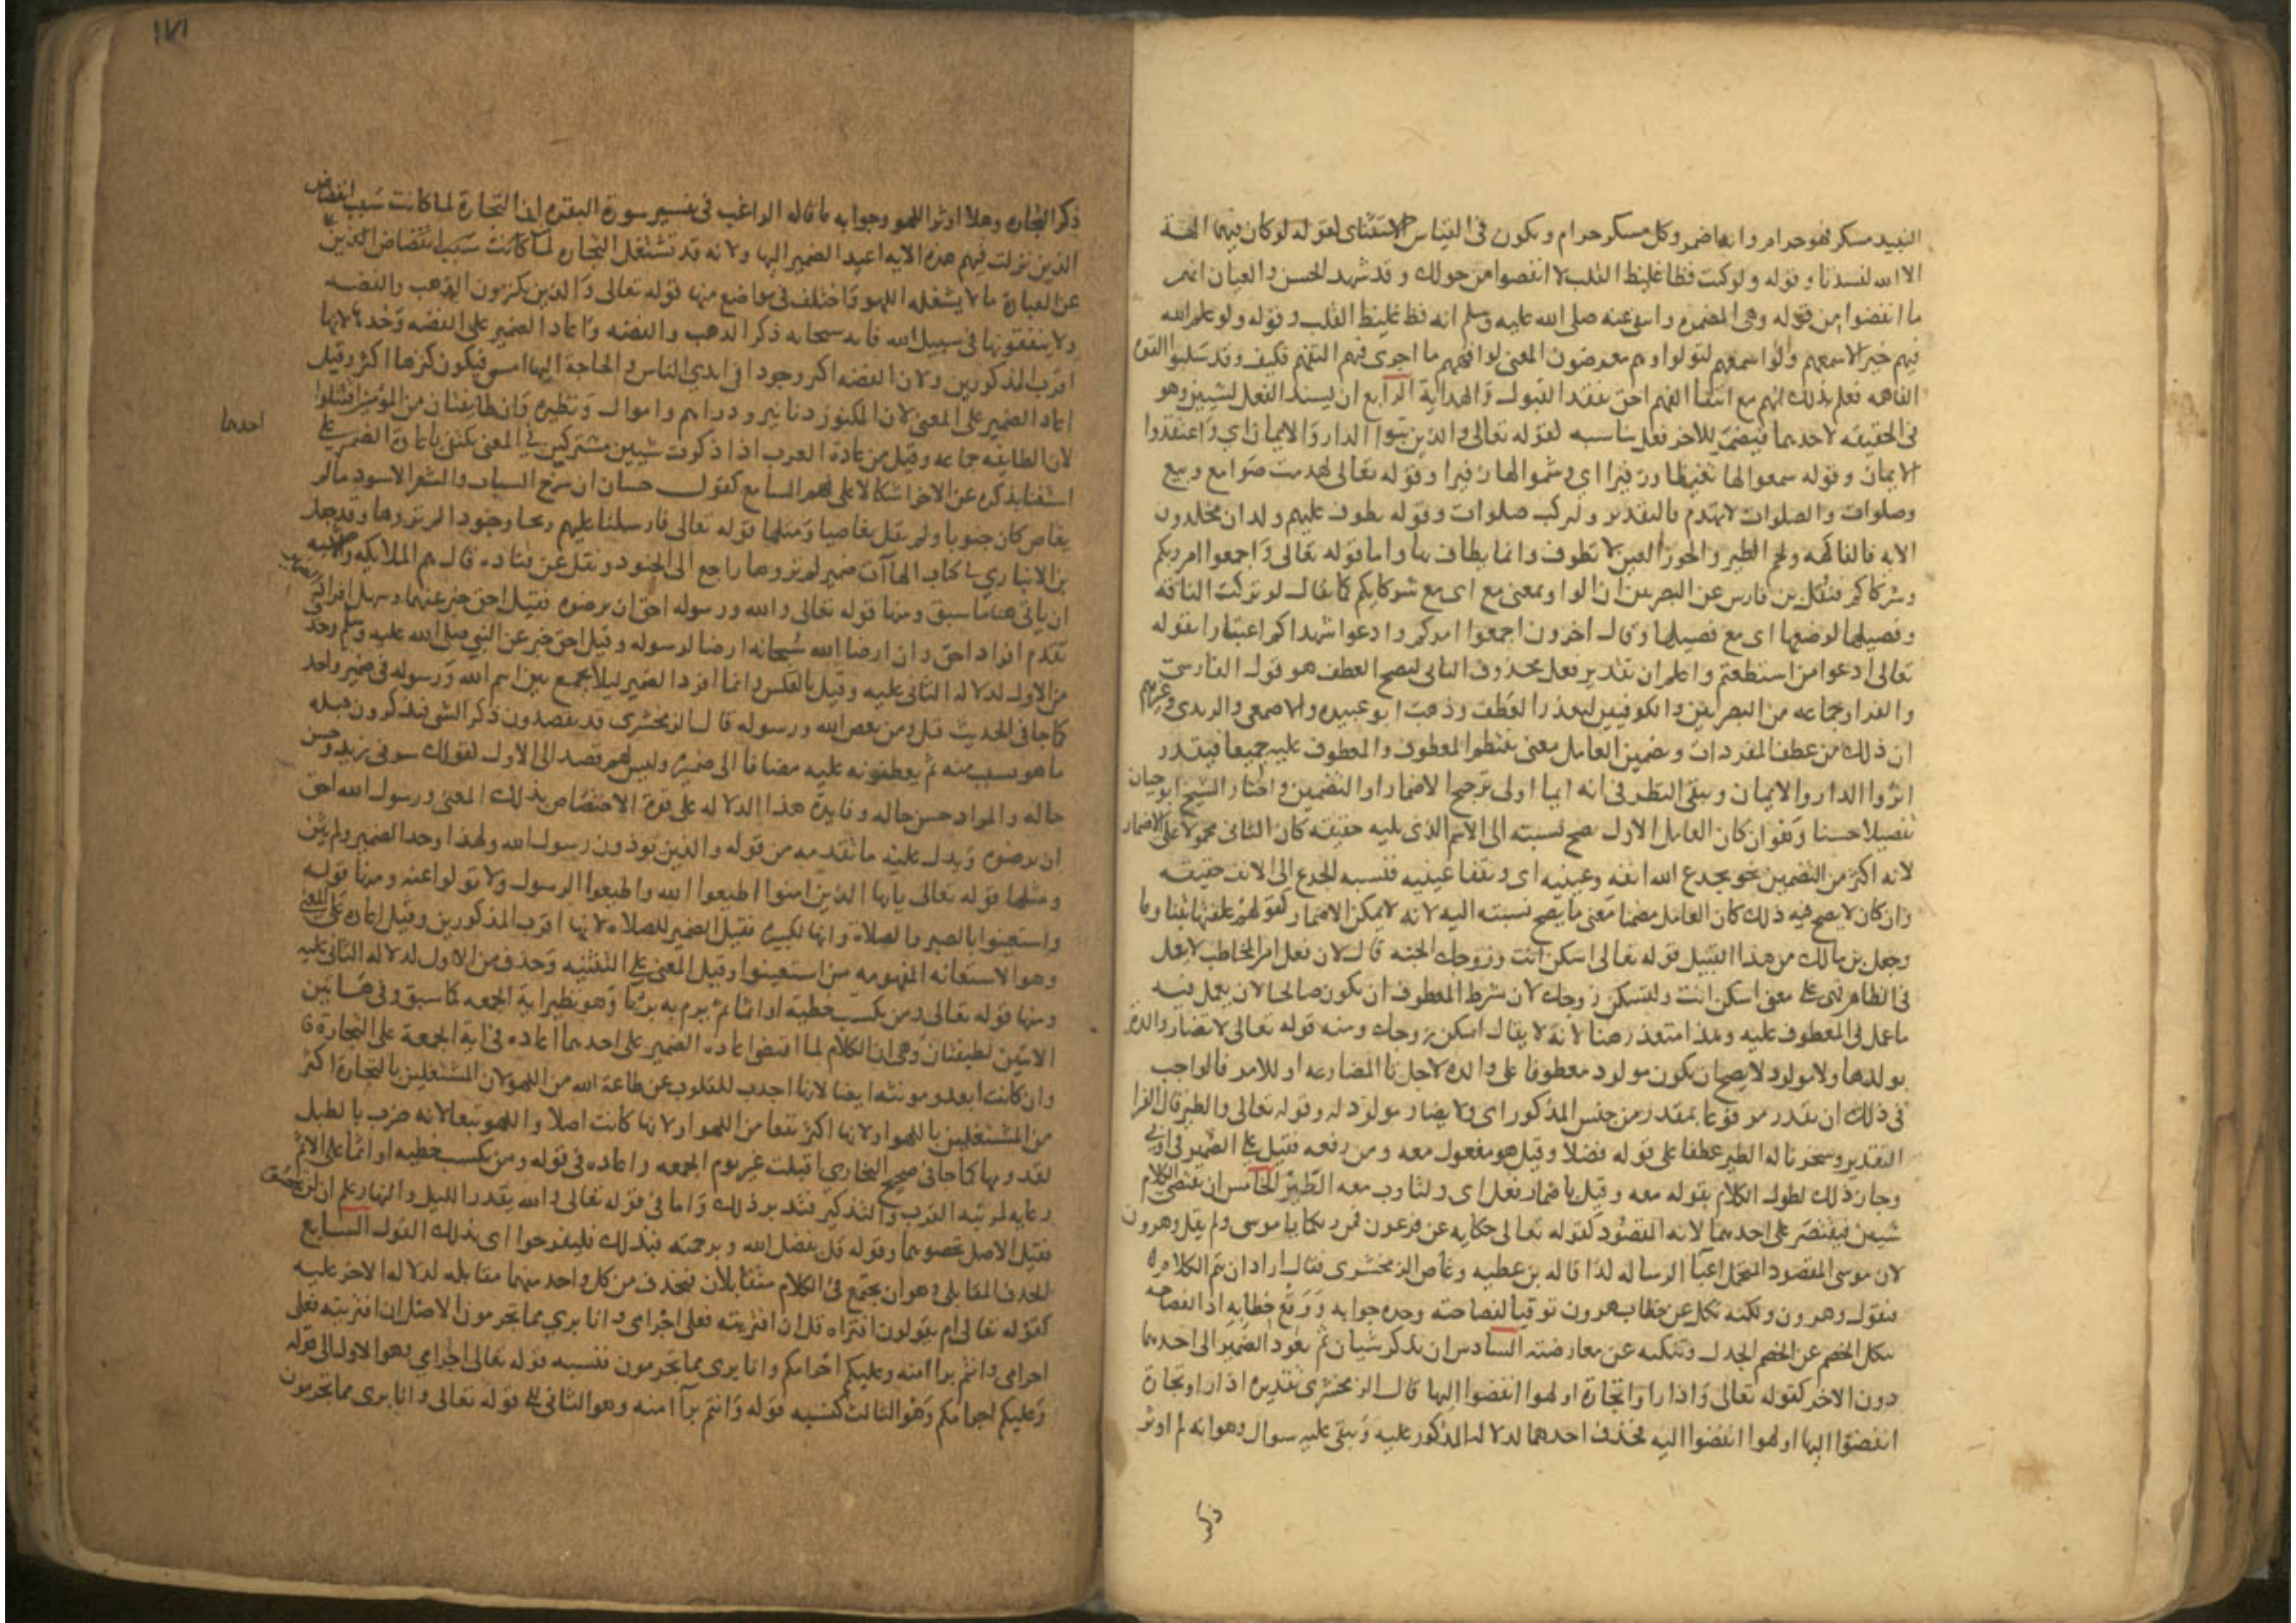 النبيد مسكر فهو حرام وانه اضمر وكل مسكر حرام ويكون في القياس الاستثناى لقوله لو كان فيهما الهة
الا الله لفسدتا وقوله ولو كنت فظا غليظ القلب لا انفضوا من حولك وقد شهد الحس والعيان انهم
ما انفضوا من قوله وهى المضمره وانتفى عنه صلى الله عليه وسلم انه فظ غليظ القلب وقوله ولو علم الله
فيهم خيرا لاسمعهم ولو اسمعهم لتولوا وهم معرضون المعنى لو افهمهم ما اجدى فيهم التفهم فكيف وقد سلبوا القوه
الفاهمه فعلم بذلك انهم مع انتفا الفهم احق بفقد القبول والهداية الرابع ان يسند الفعل لشيين وهو
فى الحقيقه لاحدهما فيضمر للاخر فعل يناسبه لقوله تعالى والذين تبوا الدار والايمان اي واعتقدوا
الايمان وقوله سمعوا لها تغيظا وزفيرا اي وشموا لها زفيرا وقوله تعالى لهدمت صوامع وبيع
وصلوات والصلوات لا تهدم فالتقدير ولتركت صلوات وقوله يطوف عليهم ولدان مخلدون
الايه فالفاكهه ولحم الطير والحور العين لا تطوف وانما يطاف بها واما قوله تعالى فاجمعوا امركم
وشركاكم فنقل بن فارس عن البصريين ان الواو بمعنى مع اى مع شركايكم كما يقال لو تركت الناقه
وفصيلها لرضعها اى مع فصيلها وقال اخرون اجمعوا امركم وادعوا شهداكم اعتبارا بقوله
تعالى ادعوا من استطعتم واعلم ان تقدير فعل محذوف الثانى ليصح العطف هو قول الفارسى
والفرا وجماعه من البصريين والكوفيين لتعذر العطف وذهب ابو عبيده والاصمعى واليزيدى وغيرهم
ان ذلك من عطف المفردات وتضمين العامل معنى ينتظم المعطوف والمعطوف عليه جميعا فيقدر
اثروا الدار والايمان ويبقى النظر فى انه ايهما اولى ترجيح الاضمار او التضمين واختار الشيخ ابو حيان
تفصيلا حسنا وهو ان كان العامل الاول يصح نسبته الى الاسم الذى يليه حقيقه كان الثانى محمولا على الاضمار
لانه اكثر من التضمين نحو يجدع الله انفه وعينيه اى ويفقا عينيه فنسبه الجدع الى الانف حقيقه
وان كان لا يصح فيه ذلك كان العامل مضمنا معنى ما يصح نسبته اليه لانه لا يمكن الاضمار كقولهم علفتها تبنا وما
وجعل بن مالك من هذا القبيل قوله تعالى اسكن انت وزوجك الجنه قال لان فعل امر المخاطب لا يعمل
فى الظاهر فهى على معنى اسكن انت ولتسكن زوجك لان شرط المعطوف ان يكون صالحا لان يعمل فيه
ما عمل فى المعطوف عليه وهذا متعذر هنا لانه لا يقال اسكن زوجك ومنه قوله تعالى لا تضار والدة
بولدها ولا مولود لا يصح ان يكون مولود معطوفا على والده لاجل تا المضارعه او للامر فالواجب
فى ذلك ان يقدر مرفوعا بمقدر من جنس المذكور اى ولا يضار مولود له وقوله تعالى والطير قال الفرا
التقدير وسخرنا له الطير عطفا على قوله فضلا وقيل هو مفعول معه ومن رفعه فقيل على الضمير فى اوبى
وجاز ذلك لطول الكلام بقوله معه وقيل باضمار فعل اى ولتاوب معه الطير الخامس ان يقتضى الكلام
شيين فيقتصر على احدهما لانه المقصود كقوله تعالى حكايه عن فرعون فمن ربكما يا موسى ولم يقل وهرون
لان موسى المقصود المتحمل اعبآ الرساله لذا قاله بن عطيه وغاص الزمخشرى فقال اراد ان يتم الكلام
فيقول وهرون ولكنه نكل عن خطاب هرون توقيا لفصاحته وحده جوابه ووقع خطابه اذ الفصاحه
تنكل الخصم عن الخصم الجدل وتنكبه عن معارضته السادس ان يذكر شيان ثم يعود الضمير الى احدهما
دون الاخر كقوله تعالى واذا راوا تجارة او لهوا انفضوا اليها قال الزمخشرى تقديره اذا راوا تجارة
انفضوا اليها او لهوا انفضوا اليه فحذف احدهما لدلاله المذكور عليه ويبقى عليه سوال وهو انه لم اوثر
ذكر
١٧١
ذكر التجاره وهلا اوثر اللهو وجوابه ما قاله الراغب فى تفسير سورة البقره ان التجارة لما كانت سبب انفضاض
الذين نزلت فيهم هذه الايه اعيد الضمير اليها ولانه قد تشتغل التجاره لما كانت سبب انفضاض الذين
عن العبادة ما لا يشغله اللهو واختلف فى مواضع منها قوله تعالى والذين يكنزون الذهب والفضه
ولا ينفقونها فى سبيل الله فانه سبحانه ذكر الذهب والفضه واعاد الضمير على الفضه وحدها لانها
اقرب المذكورين ولان الفضه اكثر وجودا فى ايدى الناس والحاجة اليها امس فيكون كنزها اكثر وقيل
اعاد الضمير على المعنى لان المكنوز دنانير ودراهم واموال ونظيره وان طايفتان من المؤمنين اقتتلوا
لان الطايفه جماعه وقيل من عادة العرب اذا ذكرت شيين مشتركين فى المعنى يكتفى باعادة الضمير على
احدهما
استغنا بذكره عن الاخر اتكالا على فهم السامع كقول حسان ان شرخ الشباب والشعر الاسود ما لم
يعاص كان جنونا ولم يقل يعاصيا ومثلها قوله تعالى فارسلنا عليهم ريحا وجنودا لم تروها وقد جعل
بن الانبارى فى كتاب الهاآت ضمير لم تروها راجع الى الجنود ونقل عن قتاده قال هم الملايكه
ان ياتى هنا ما سبق ومنها قوله تعالى والله ورسوله احق ان يرضوه فقيل احق خبر عنهما وسهل افراد
تقدم افراد احق وان ارضا الله سبحانه ارضا لرسوله وقيل احق خبر عن النبى صلى الله عليه وسلم وحذف
من الاول لدلاله الثانى عليه وقيل بالعكس وانما افرد الضمير ليلا يجمع بين اسم الله ورسوله فى ضمير واحد
كما جا فى الحديث قل ومن يعص الله ورسوله قال الزمخشرى قد يقصدون ذكر الشى فيذكرون قبله
ما هو سبب منه ثم يعطفونه عليه مضافا الى ضميره وليس لهم قصد الى الاول لقولك سرنى زيد وحسن
حاله والمراد حسن حاله وفايدة هذا الدلاله على قوة الاختصاص بذلك المعنى ورسول الله احق
ان يرضوه ويدل عليه ما تقدمه من قوله والذين يوذون رسول الله ولهذا وحد الضمير ولم يثن
ومثلها قوله تعالى يايها الذين امنوا اطيعوا الله واطيعوا الرسول ولا تولوا عنه ومنها قوله
واستعينوا بالصبر والصلاة وانها لكبيره فقيل الضمير للصلاه لانها اقرب المذكورين وقيل اعاده على المعنى
وهو الاستعانه المفهومه من استعينوا وقيل المعنى على التثنيه وحذف من الاول لدلاله الثانى عليه
ومنها قوله تعالى ومن يكسب خطية او اثما ثم يرم به بريا وهو نظير اية الجمعه كما سبق وفى هاتين
الايتين لطيفتان وهى ان الكلام لما اقتضى اعاده الضمير على احدهما اعاده فى اية الجمعة على التجارة
وان كانت ابعد ومونثه ايضا لانها اجذب للقلوب عن طاعة الله من اللهو لان المشتغلين بالتجارة اكثر
من المشتغلين باللهو او لانها اكثر نفعا من اللهو او لانها كانت اصلا واللهو تبعا لانه ضرب بالطبل
لقدومها كما جا فى صحيح البخارى اقبلت عير يوم الجمعه واعاده فى قوله ومن يكسب خطيه او اثما على الاثم
رعايه لمرتبه القرب والتذكير فتدبر ذلك واما فى قوله تعالى والله يقدر الليل والنهار علم ان لن تحصوه
فقيل الاصل تحصوهما وقوله قل بفضل الله وبرحمته فبذلك فليفرحوا اى بذلك القول السابع
الحذف المقابلى وهو ان يجتمع فى الكلام متقابلان فيحذف من كل واحد منهما مقابله لدلاله الاخر عليه
كقوله تعالى ام يقولون افتراه قل ان افتريته فعلى اجرامى وانا برى مما تجرمون الاصل ان افتريته فعلى
اجرامى وانتم برآ منه وعليكم اجرامكم وانا برى مما تجرمون فنسبه قوله تعالى اجرامى وهو الاول الى قوله
وعليكم اجرامكم وهو الثالث كنسبه قوله وانتم برآ منه وهو الثانى الى قوله تعالى وانا برى مما تجرمون